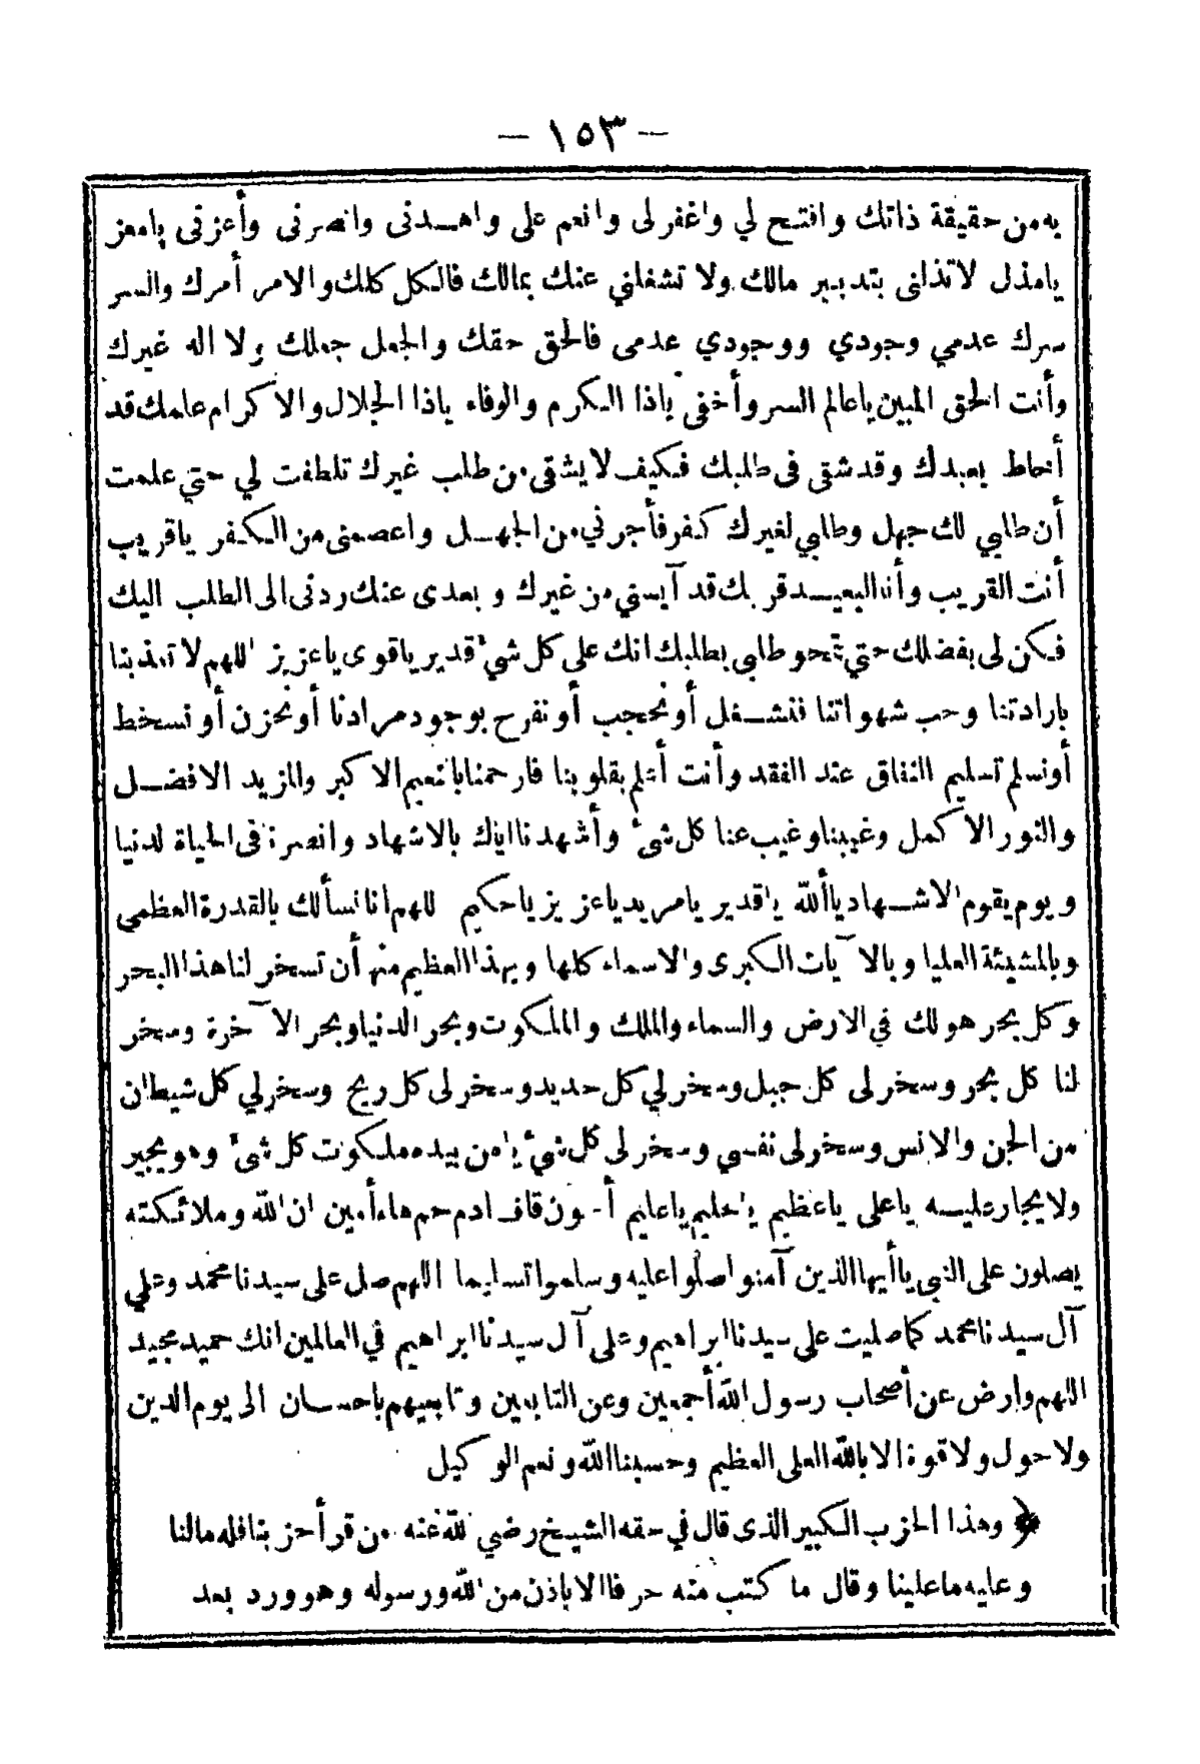 — ١٥٣ —
به من حقيقة ذاتك وافتح لي واغفر لى وانعم على واهدنى وانصرنى وأعزنى يامعز
يامذل لاتذلنى بتدبير مالك ولا تشغلني عنك بمالك فالكل كلك والامر أمرك والسر
سرك عدمي وجودي ووجودي عدمى فالحق حقك والجعل جعلك ولا اله غيرك
وأنت الحق المبين ياعالم السر وأخفى ياذا الكرم والوفاء ياذا الجلال والاكرام علمك قد
أحاط بعبدك وقد شقى فى طلبك فكيف لا يشقى من طلب غيرك تلطفت لي حتى علمت
أن طلبي لك جهل وطلبي لغيرك كفر فأجرني من الجهل واعصمنى من الكفر ياقريب
أنت القريب وأنا البعيد قربك قد آيسني من غيرك وبعدى عنك ردنى الى الطلب اليك
فكن لى بفضلك حتى تمحو طلبى بطلبك انك على كل شئ قدير ياقوى ياعزيز اللهم لا تعذبنا
بارادتنا وحب شهواتنا فنشغل أونحجب أونفرح بوجود مرادنا أونحزن أونسخط
أونسلم تسليم النفاق عند الفقد وأنت أعلم بقلوبنا فارحمنا بالنعيم الاكبر والمزيد الافضل
والنور الاكمل وغيبنا وغيب عنا كل شئ وأشهدنا اياك بالاشهاد وانصرنا فى الحياة لدنيا
ويوم يقوم الاشهاد ياألله ياقدير يامريد ياعزيز ياحكيم للهم انا نسألك بالقدرة العظمى
وبالمشيئة العليا وبالآيات الكبرى والاسماء كلها وبهذا العظيم منها أن تسخر لنا هذا البحر
وكل بحر هو لك في الارض والسماء والملك والملكوت وبحر الدنيا وبحر الآخرة وسخر
لنا كل بحر وسخر لى كل جبل وسخر لي كل حديد وسخر لى كل ريح وسخر لي كل شيطان
من الجن والانس وسخر لى نفسي وسخر لى كل شئ يامن بيده ملكوت كل شئ وهو يجير
ولايجار عليه ياعلى ياعظيم ياحليم ياعليم أحون قاف ادم حم هاء أمين ان الله وملائكته
يصلون على النبى ياأيها الذين آمنوا صلوا عليه وسلموا تسليما اللهم صل على سيدنا محمد وعلي
آل سيدنا محمد كما صليت على سيدنا ابراهيم وعلى آل سيدنا ابراهيم في العالمين انك حميد مجيد
اللهم وارض عن أصحاب رسول الله أجمعين وعن التابعين وتابعيهم باحسان الى يوم الدين
ولا حول ولا قوة الا بالله العلى العظيم وحسبنا الله ونعم الوكيل
﴿ وهذا الحزب الكبير الذى قال في حقه الشيخ رضي لله عنه من قرأ حزبنا فله مالنا
وعليه ماعلينا وقال ما كتبت منه حرفا الا باذن من الله ورسوله وهو ورد بعد